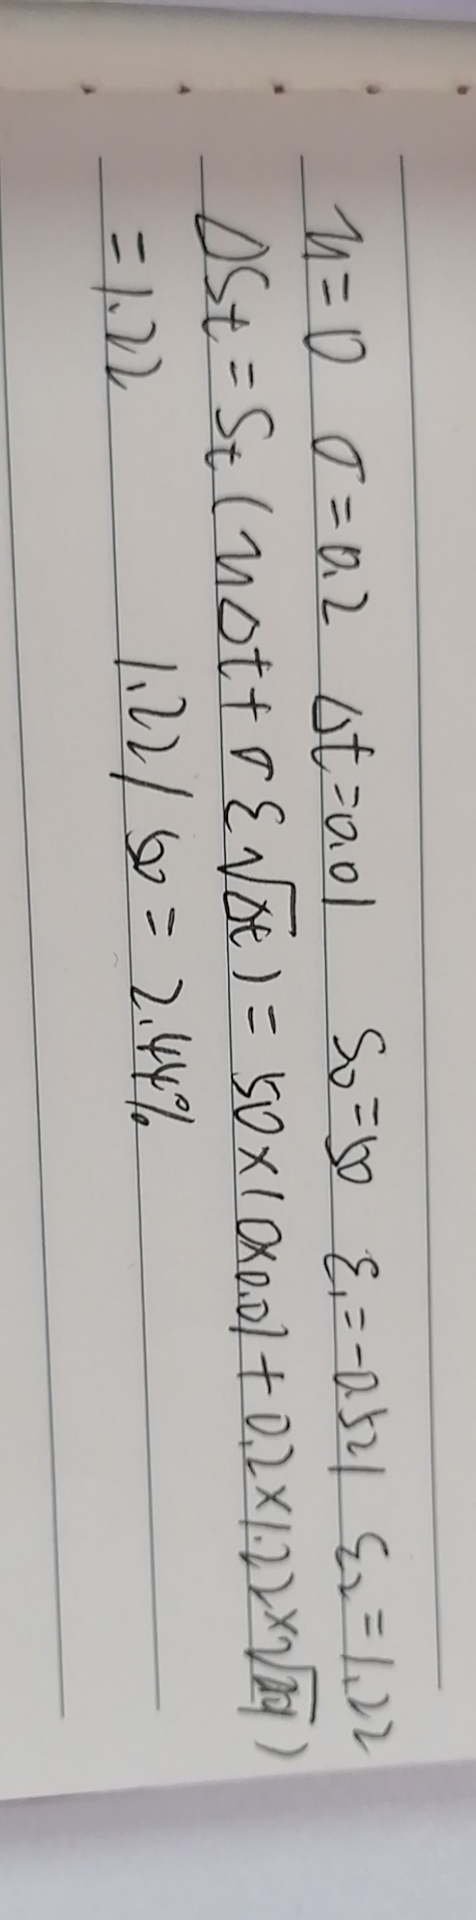 μ=0 σ=0.2 Δt=0.01 S0=50 ε1=-0.521 ε2=1.22
ΔSt=St(μΔt+σε√Δt)=50×(0×0.01+0.2×1.22×√0.01)
=1.22 1.22/50=2.44%